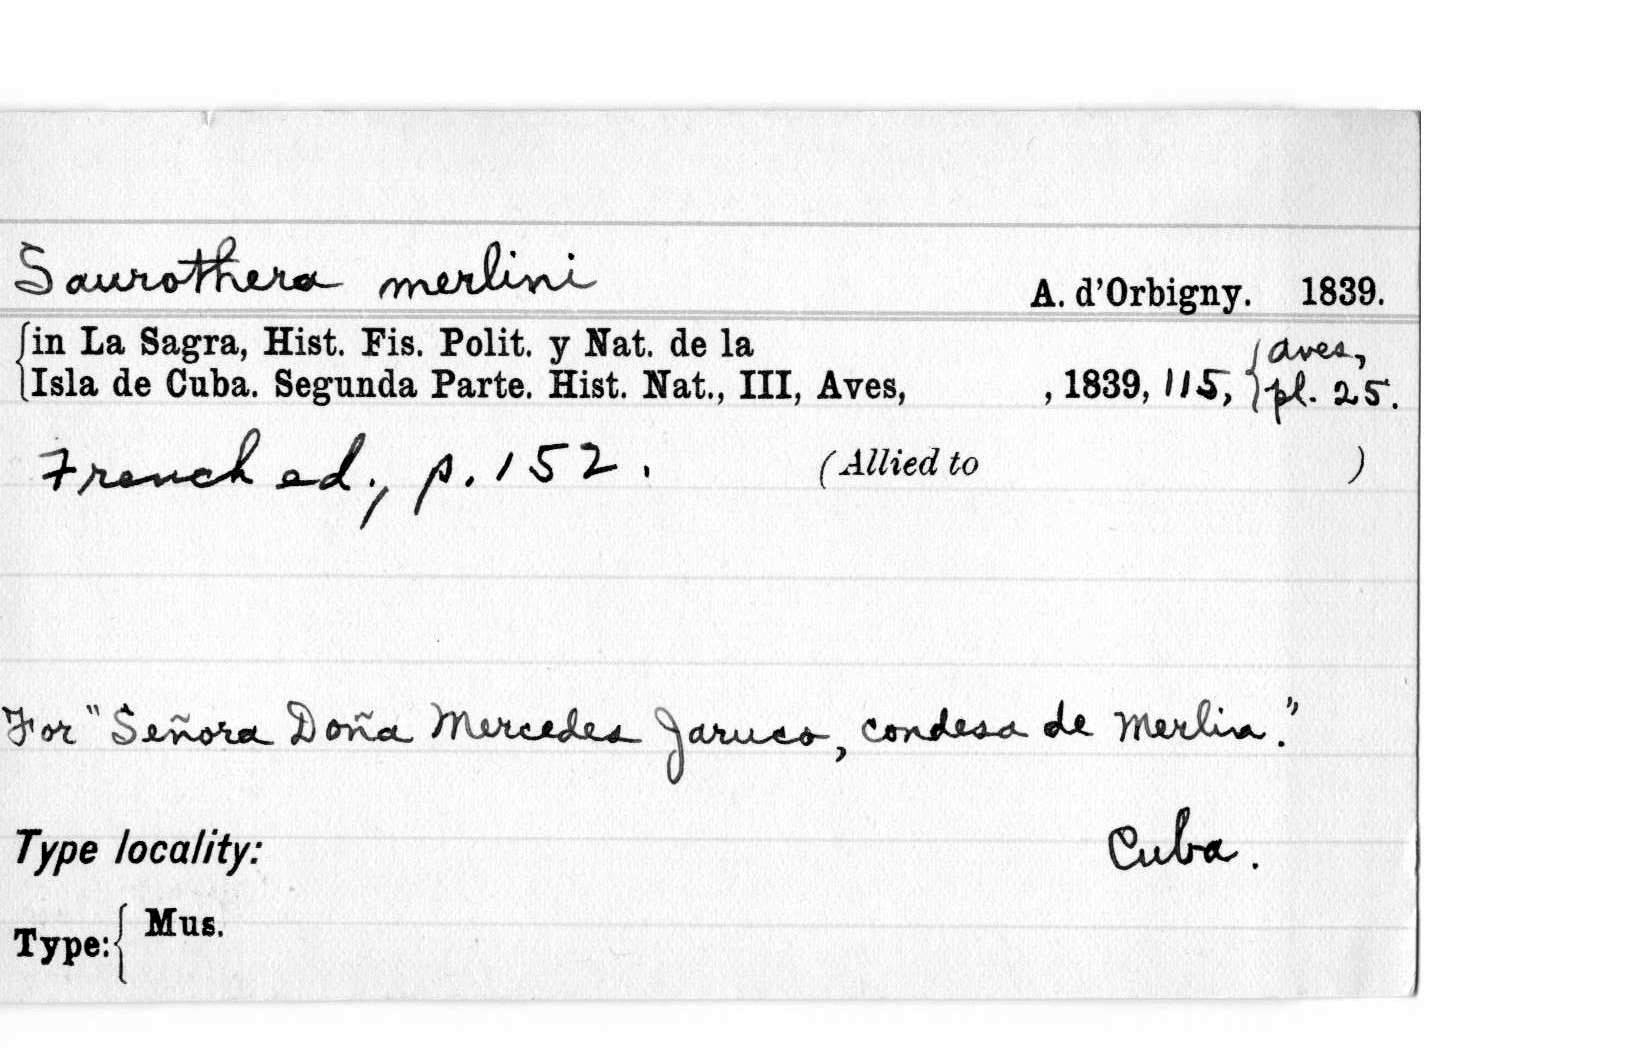 Saurothera merlini A. d'Orbigny. 1839.
{in La Sagra, Hist. Fis. Polit. y Nat. de la {aves,
Isla de Cuba. Segunda Parte. Hist. Nat., III, Aves, , 1839, 115, pl. 25.
French ed., p. 152. (Allied to )
For "Señora Doña Mercedes Jaruco, condesa de Merlin."
Type locality: Cuba.
Type:{ Mus.